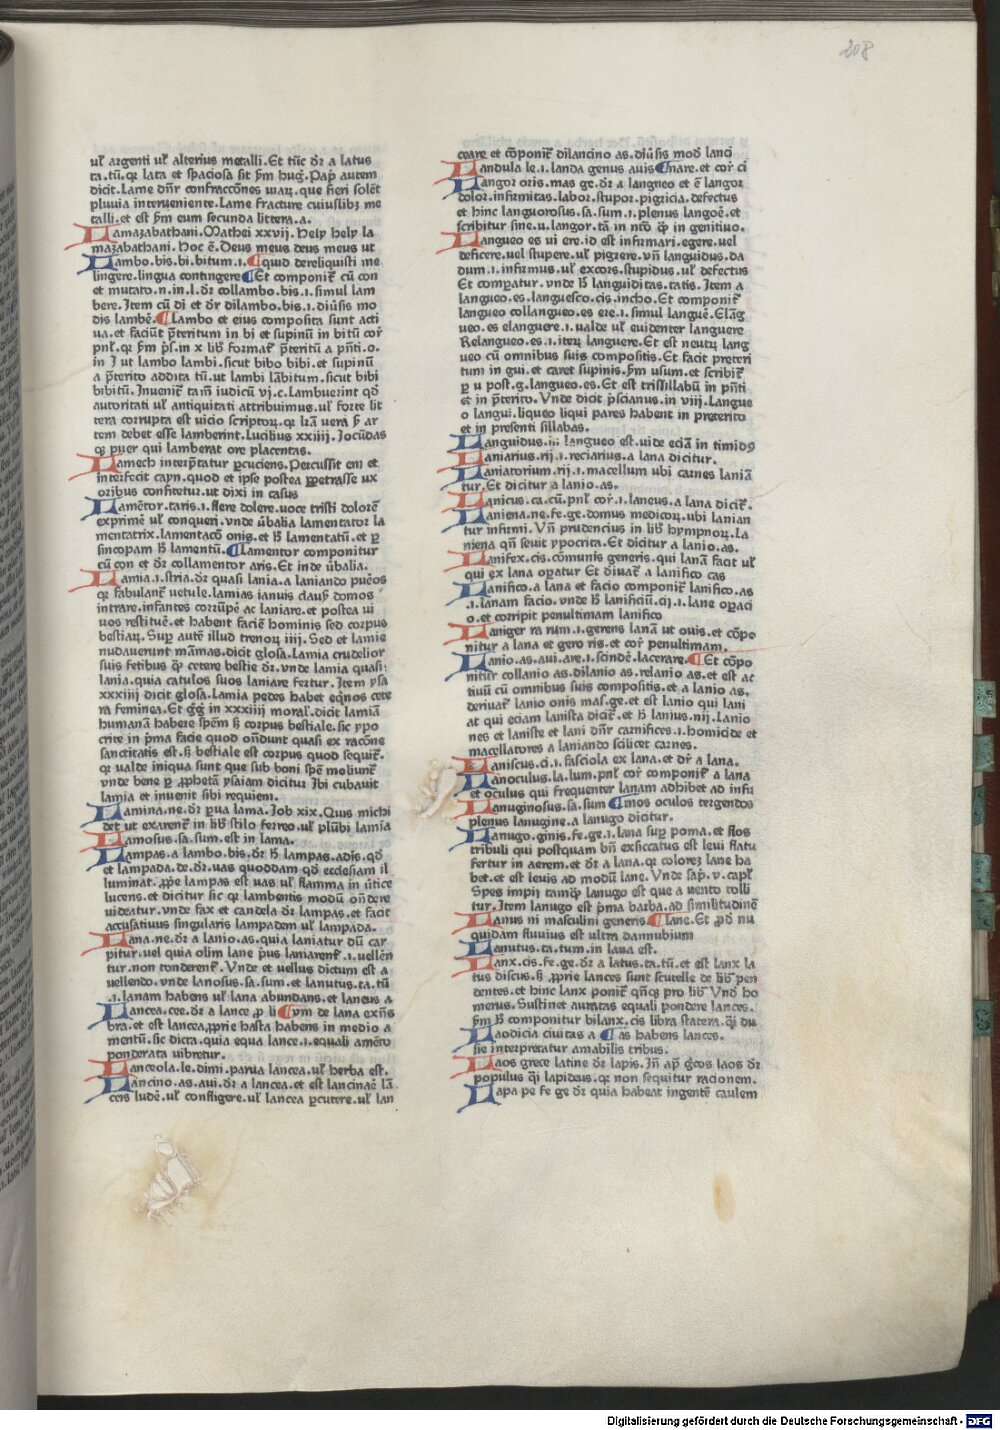 208
ul᷑ argenti ul᷑ alterius metalli. Et tūc dr̄ a latus
ta. tū. qꝛ lata et spaciosa sit ẜm hug̃. Pap̄ autem
dicit. Lame dn̄r confraccōnes uiaꝝ. que fieri solēt
pluuia interueniente. Lame fracture cuiuslibꝫ me
talli. et est ẜm eum secunda littera. a.
Lamazabathani. Mathei xxvij. Hely hely la
mazabathani. Hoc ē. Deus meus deus meus ut
Lambo. bis. bi. bitum. i. ¶quid dereliquisti me
lingere. lingua contingere ¶Et componit᷑ cū con
et mutato. n. in. l. dr̄ collambo. bis. i. simul lam
bere. Item cū di et dr̄ dilambo. bis. i. diūsis mo
dis lambē. ¶Lambo et eius composita sunt acti
ua. et faciūt p̄teritum in bi et supinū in bitū cor᷑
pnl᷑. qꝛ ẜm p̄s. in x lib᷑ format᷑ p̄teritū a p̄nti. o.
in I ut lambo lambi. sicut bibo bibi. et supinū
a p̄terito addita tū. ut lambi lābitum. sicut bibi
bibitū. Inuenit᷑ tam̄ iudicū vj. c. Lambuerint qd̄
autoritati ul᷑ antiquitati attribuimus. ul᷑ forte lit
tera corrupta est uicio scriptoꝝ. qꝛ lr̄a uera ẜ ar
tem debet esse lamberint. Lucilius xxiiij. Jocūdas
qꝫ puer qui lamberat ore placentas.
Lamech interp̄tatur ꝑcuciens. Percussit em̄ et
interfecit cayn. quod et ipse postea ꝑpetrasse ux
oribus confitetur. ut dixi in casus
Lamētor. taris. i. flere dolere. uoce tristi dolorē
exprimē ul᷑ conqueri. vnde ūbalia lamentator la
mentatrix. lamentacō onis. et h̄ lamentatū. et ꝑ
sincopam h̄ lamentū. ¶Lamentor componitur
cū con et dr̄ collamentor aris. Et inde ūbalia.
Lamia. i. stria. dr̄ quasi lania. a laniando pūos
qꝛ fabulant᷑ uetule. lamias ianuis claus̄ domos
intrare. infantes corrūpē ac laniare. et postea ui
uos restituē. et habent faciē hominis sed corpus
bestiaꝝ. Sup̄ autē illud trenoꝝ iiij. Sed et lamie
nudauerunt māmas. dicit glosa. Lamia crudelior
suis fetibus qꝫ cetere bestie dr̄. vnde lamia quasi
lania. quia catulos suos laniare fertur. Item ysa
xxxiiij dicit glosa. Lamia pedes habet eqͥnos cete
ra feminea. Et g̃g̃ in xxxiiij moral᷑. dicit lamiā
humanā habere spēm ẜ corpus bestiale. sic ypo
crite in p̄ma facie quod on̄dunt quasi ex racōne
sanctitatis est. ẜ bestiale est corpus quod sequit᷑.
qꝛ ualde iniqua sunt que sub boni spē moliunt᷑
vnde bene ꝑ ꝓphetā ysaiam dicitur Ibi cubauit
lamia et inuenit sibi requiem.
Lamina. ne. dr̄ ꝑua lama. Job xix. Quis michi
det ut exarent᷑ in lib᷑ stilo ferreo. ul᷑ plūbi lamia
Lamosus. sa. sum. est in lama.
Lampas. a lambo. bis. dr̄ h̄ lampas. adis. qd̄
et lampada. de. dr̄. uas quoddam qd̄ ecclesiam il
luminat. ꝓpe lampas est uas ul᷑ flamma in ūtice
lucens. et dicitur sic qꝛ lambentis modū on̄dere
uideatur. vnde fax et candela dr̄ lampas. et facit
accusatiuus singularis lampadem ul᷑ lampada.
Lana. ne. dr̄ a lanio. as. quia laniatur dū car
pitur. uel quia olim lane p̄us laniarent᷑. i. uellēn
tur. non tonderent᷑. Vnde et uellus dictum est a
uellendo. vnde lanosus. sa. sum. et lanutus. ta. tū
. i. lanam habens ul᷑ lana abundans. et laneus a
Lancea. cee. dr̄ a lance. ꝓ li ¶vm de lana exn̄s
bra. et est lancea. ꝓprie hasta habens in medio a
mentū. sic dicta. quia equa lance. i. equali amēto
ponderata uibretur.
Lanceola. le. dimi. parua lancea. ul᷑ herba est.
Lancino. as. aui. dr̄ a lancea. et est lancinaē lā
ceis ludē. ul᷑ confligere. ul᷑ lancea ꝑcutere. ul᷑ lan
ceare et cōponit᷑ dilancino as. diūsis mod̄ lanci
Landula. le. i. landa genus auis ¶nare. et cor᷑ ci
Langor oris. mas ge. dr̄ a langueo et ē langor
dolor. infirmitas. labor. stupor. pigricia. defectus
et hinc languorosus. sa. sum. i. plenus langoē. et
scribitur sine. u. langor. tā in ntō qꝫ in genitiuo.
Langueo es ui ere. id est infirmari. egere. uel
deficere. uel stupere. ul᷑ pigrere. vn̄ languidus. da
dum. i. infirmus. ul᷑ excors. stupidus. ul᷑ defectus
Et comꝑatur. vnde h̄ languiditas. tatis. Item a
langueo. es. languesco. cis. incho. Et componit᷑
langueo collangueo. es ere. i. simul languē. Elāg
ueo. es elanguere. i. ualde ul᷑ euidenter languere
Relangueo. es. i. iteꝝ languere. Et est neutꝝ lang
ueo cū omnibus suis compositis. Et facit preteri
tum in gui. et caret supinis. ẜm usum. et scribit᷑
ꝑ u post. g. langueo. es. Et est trissillabū in p̄nti
et in p̄terito. Vnde dicit p̄scianus. in viij. Langue
o langui. liqueo liqui pares habent in preterito
et in presenti sillabas.
Languidus. in langueo est. uide eciā in timidꝰ
Laniarius. rij. i.reciarius. a lana dicitur.
Laniatorium. rij. i. macellum ubi carnes laniā
tur. Et dicitur a lanio. as.
Lanicus. ca. cū. pnl᷑ cor᷑. i. laneus. a lana dicit᷑.
Laniena. ne. fe. ge. domus medicoꝝ. ubi lanian
tur infirmi. Vn̄ prudencius in lib᷑ hympnoꝝ. La
niena qn̄ seuit ypocrita. Et dicitur a lanio. as.
Lanifex. cis. cōmunis generis. qui lanā facit ul᷑
qui ex lana oꝑatur Et diuat᷑ a lanifico cas
Lanifico. a lana et facio componit᷑ lanifico. as
. i. lanam facio. vnde h̄ lanificiū. cij. i. lane oꝑaci
o. et corripit penultimam lanifico
Laniger ra rum. i. gerens lanā ut ouis. et cōpo
nitur a lana et gero ris. et cor᷑ penultimam.
Lanio. as. aui. are. i. scindē. lacerare. ¶Et cōpo
nitur collanio as. dilanio as. relanio as. et est ac
tiuū cū omnibus suis compositis. et a lanio as.
deriuat᷑ lanio onis mas. ge. et est lanio qui lani
at qui eciam lanista dicit᷑. et h̄ lanius. nij. Lanio
nes et laniste et lani dn̄r carnifices. i. homicide et
macellatores a laniando scilicet carnes.
Laniscus. ci. i. fasciola ex lana. et dr̄ a lana.
Lanoculus. la. lum. pnl᷑ cor᷑ componit᷑ a lana
et oculus qui frequenter lanam adhibet ad infir
Lanuginosus. sa. sum ¶mos oculos tergendos
plenus lanugine. a lanugo dicitur.
Lanugo. ginis. fe. ge. i. lana suꝑ poma. et flos
tribuli qui postquam bn̄ exsiccatus est leui flatu
fertur in aerem. et dr̄ a lana. qꝛ colorem lane ha
bet. et est leuis ad modū lane. Vnde sap̄. v. capl᷑
Spes impij tamqꝫ lanugo est que a uento tolli
tur. Item lanugo est p̄ma barba. ad similitudinē
Lanus ni masculini generis. ¶lane. Et ꝓd̄ nu
quidam fluuius est ultra dannubium
Lanutus. ta. tum. in lana est.
Lanx. cis. fe. ge. dr̄ a latus. ta. tū. et est lanx la
tus discus. ẜ ꝓprie lances sunt scutelle de lib᷑ pen
dentes. et hinc lanx ponit᷑ qn̄qꝫ pro lib᷑ Vnd̄ ho
merus. Sustinet auratas equali pondere lances.
ẜm h̄ componitur bilanx. cis libra statera. qͥ du
Laodicia ciuitas a ¶as habens lances.
sie interpretatur amabilis tribus.
Laos grece latine dr̄ lapis. In ap̄ g̃cos laos dr̄
populus qͥ lapideus. qꝛ non sequitur racionem.
Lapa pe fe ge dr̄ quia habeat ingentē caulem
Digitalisierung gefördert durch die Deutsche Forschungsgemeinschaft - DFG